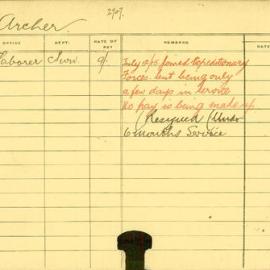 Archer.
2707.
OFFICE DEPT. RATE OF PAY REMARKS
Laborer Surv. 9/- July 2/15 Joined Expeditionary
Forces but being only
a few days in service
no pay is being made up
(Resigned) (Under
6 months Service